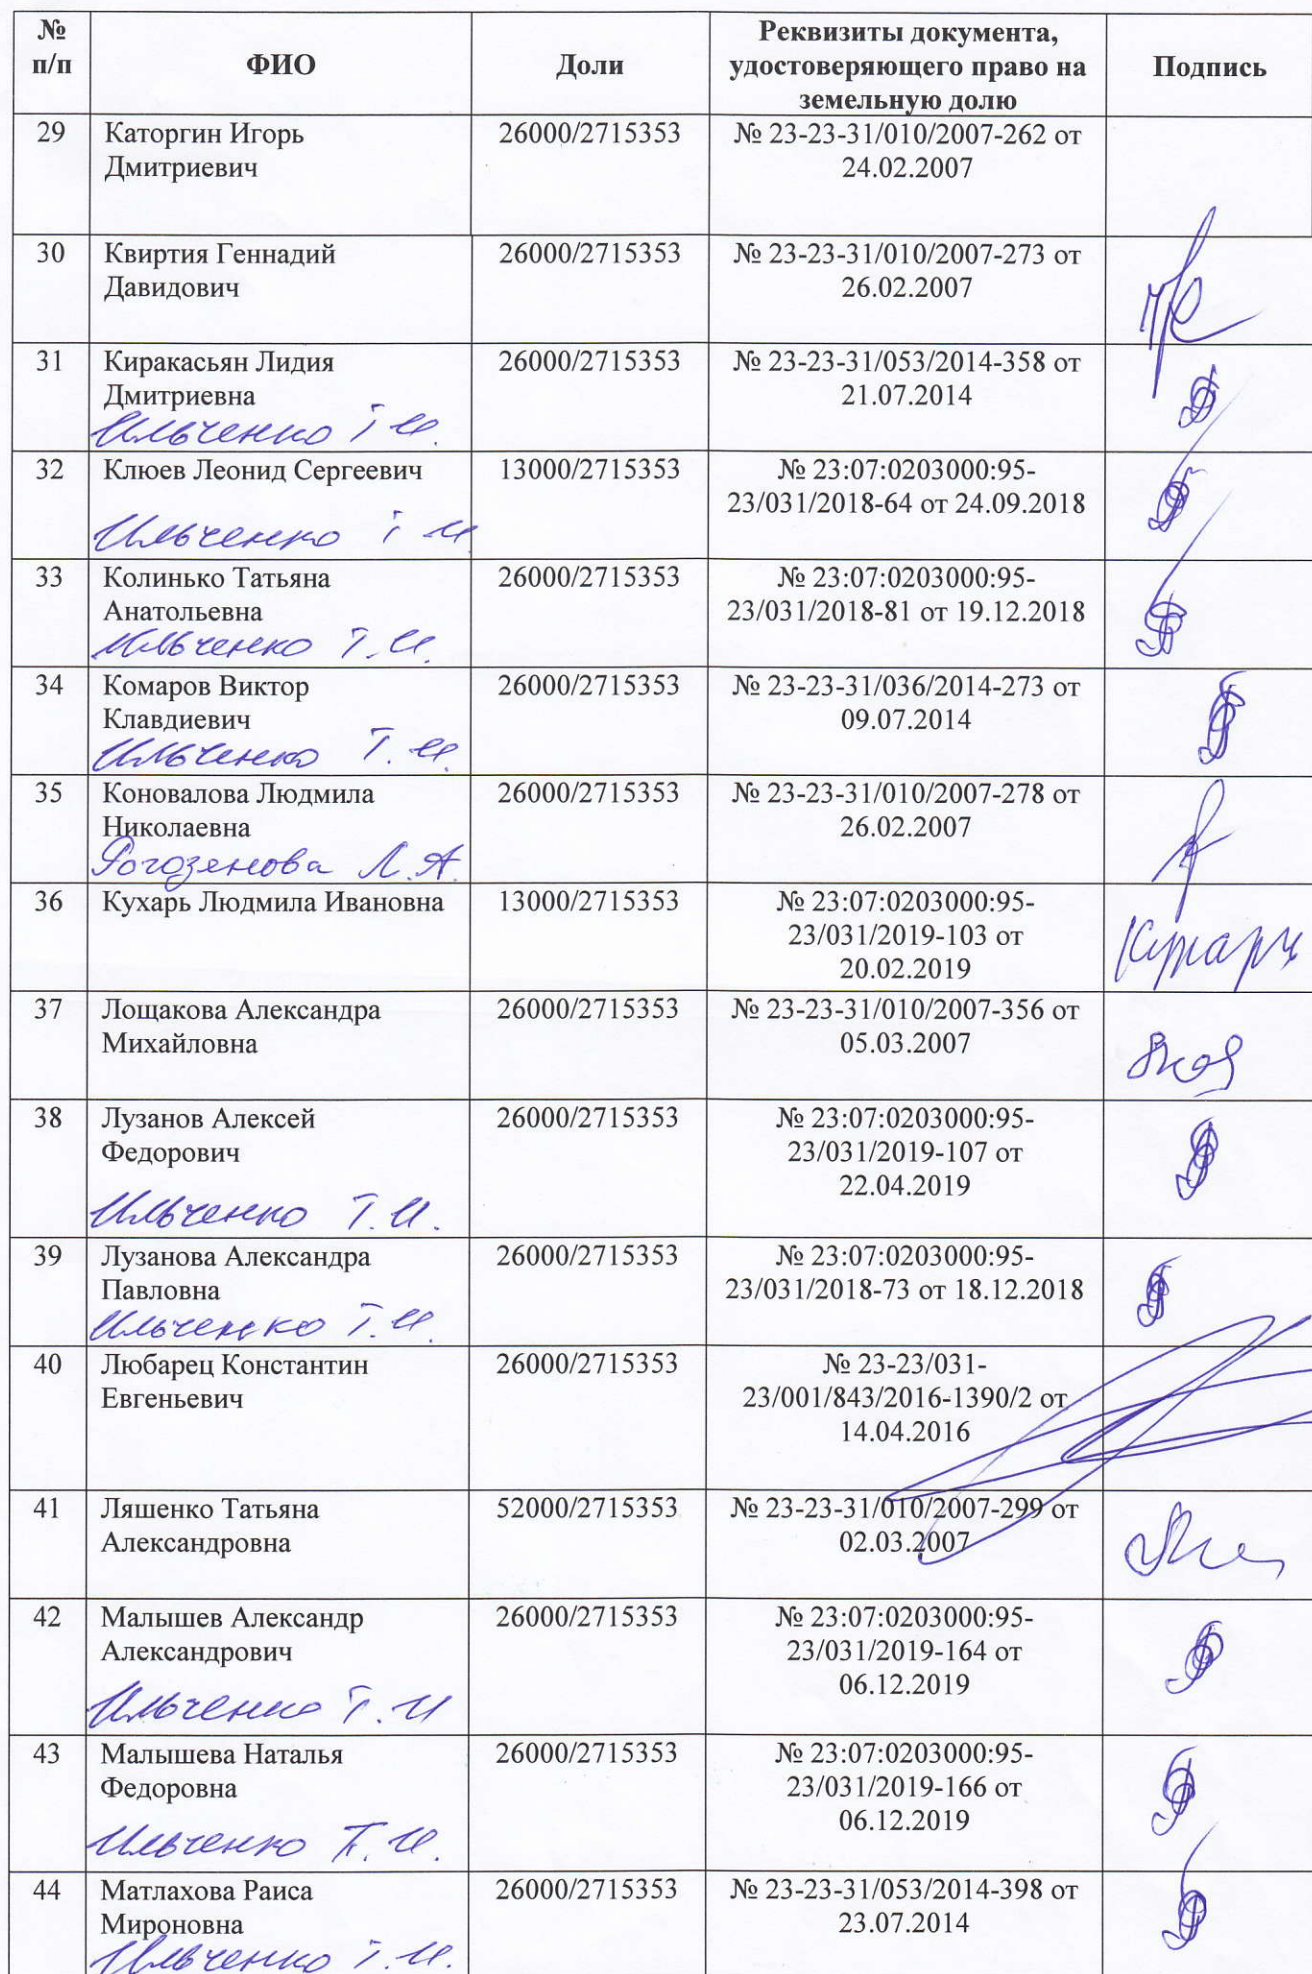 № п/п
ФИО
Доли
Реквизиты документа,
удостоверяющего право на
земельную долю
Подпись
29
Каторгин Игорь
Дмитриевич
26000/2715353
№ 23-23-31/010/2007-262 от
24.02.2007
30
Квиртия Геннадий
Давидович
26000/2715353
№ 23-23-31/010/2007-273 от
26.02.2007
31
Киракасьян Лидия
Дмитриевна
Ильченко Т И.
26000/2715353
№ 23-23-31/053/2014-358 от
21.07.2014
32
Клюев Леонид Сергеевич
Ильченко Т И
13000/2715353
№ 23:07:0203000:95-
23/031/2018-64 от 24.09.2018
33
Колинько Татьяна
Анатольевна
Ильченко Т.И.
26000/2715353
№ 23:07:0203000:95-
23/031/2018-81 от 19.12.2018
34
Комаров Виктор
Клавдиевич
Ильченко Т.И.
26000/2715353
№ 23-23-31/036/2014-273 от
09.07.2014
35
Коновалова Людмила
Николаевна
Рогозенова Л.А.
26000/2715353
№ 23-23-31/010/2007-278 от
26.02.2007
36
Кухарь Людмила Ивановна
13000/2715353
№ 23:07:0203000:95-
23/031/2019-103 от
20.02.2019
37
Лощакова Александра
Михайловна
26000/2715353
№ 23-23-31/010/2007-356 от
05.03.2007
38
Лузанов Алексей
Федорович
Ильченко Т.И.
26000/2715353
№ 23:07:0203000:95-
23/031/2019-107 от
22.04.2019
39
Лузанова Александра
Павловна
Ильченко Т.И.
26000/2715353
№ 23:07:0203000:95-
23/031/2018-73 от 18.12.2018
40
Любарец Константин
Евгеньевич
26000/2715353
№ 23-23/031-
23/001/843/2016-1390/2 от
14.04.2016
41
Ляшенко Татьяна
Александровна
52000/2715353
№ 23-23-31/010/2007-299 от
02.03.2007
42
Малышев Александр
Александрович
Ильченко Т.И
26000/2715353
№ 23:07:0203000:95-
23/031/2019-164 от
06.12.2019
43
Малышева Наталья
Федоровна
Ильченко Т.И.
26000/2715353
№ 23:07:0203000:95-
23/031/2019-166 от
06.12.2019
44
Матлахова Раиса
Мироновна
Ильченко Т.И.
26000/2715353
№ 23-23-31/053/2014-398 от
23.07.2014